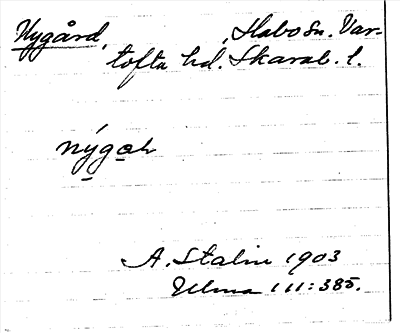 Nygård, Habo sn. Var-
tofta hd. Skarab. l.
nýgah
A. Stalin 1903
Ulma 111:385.